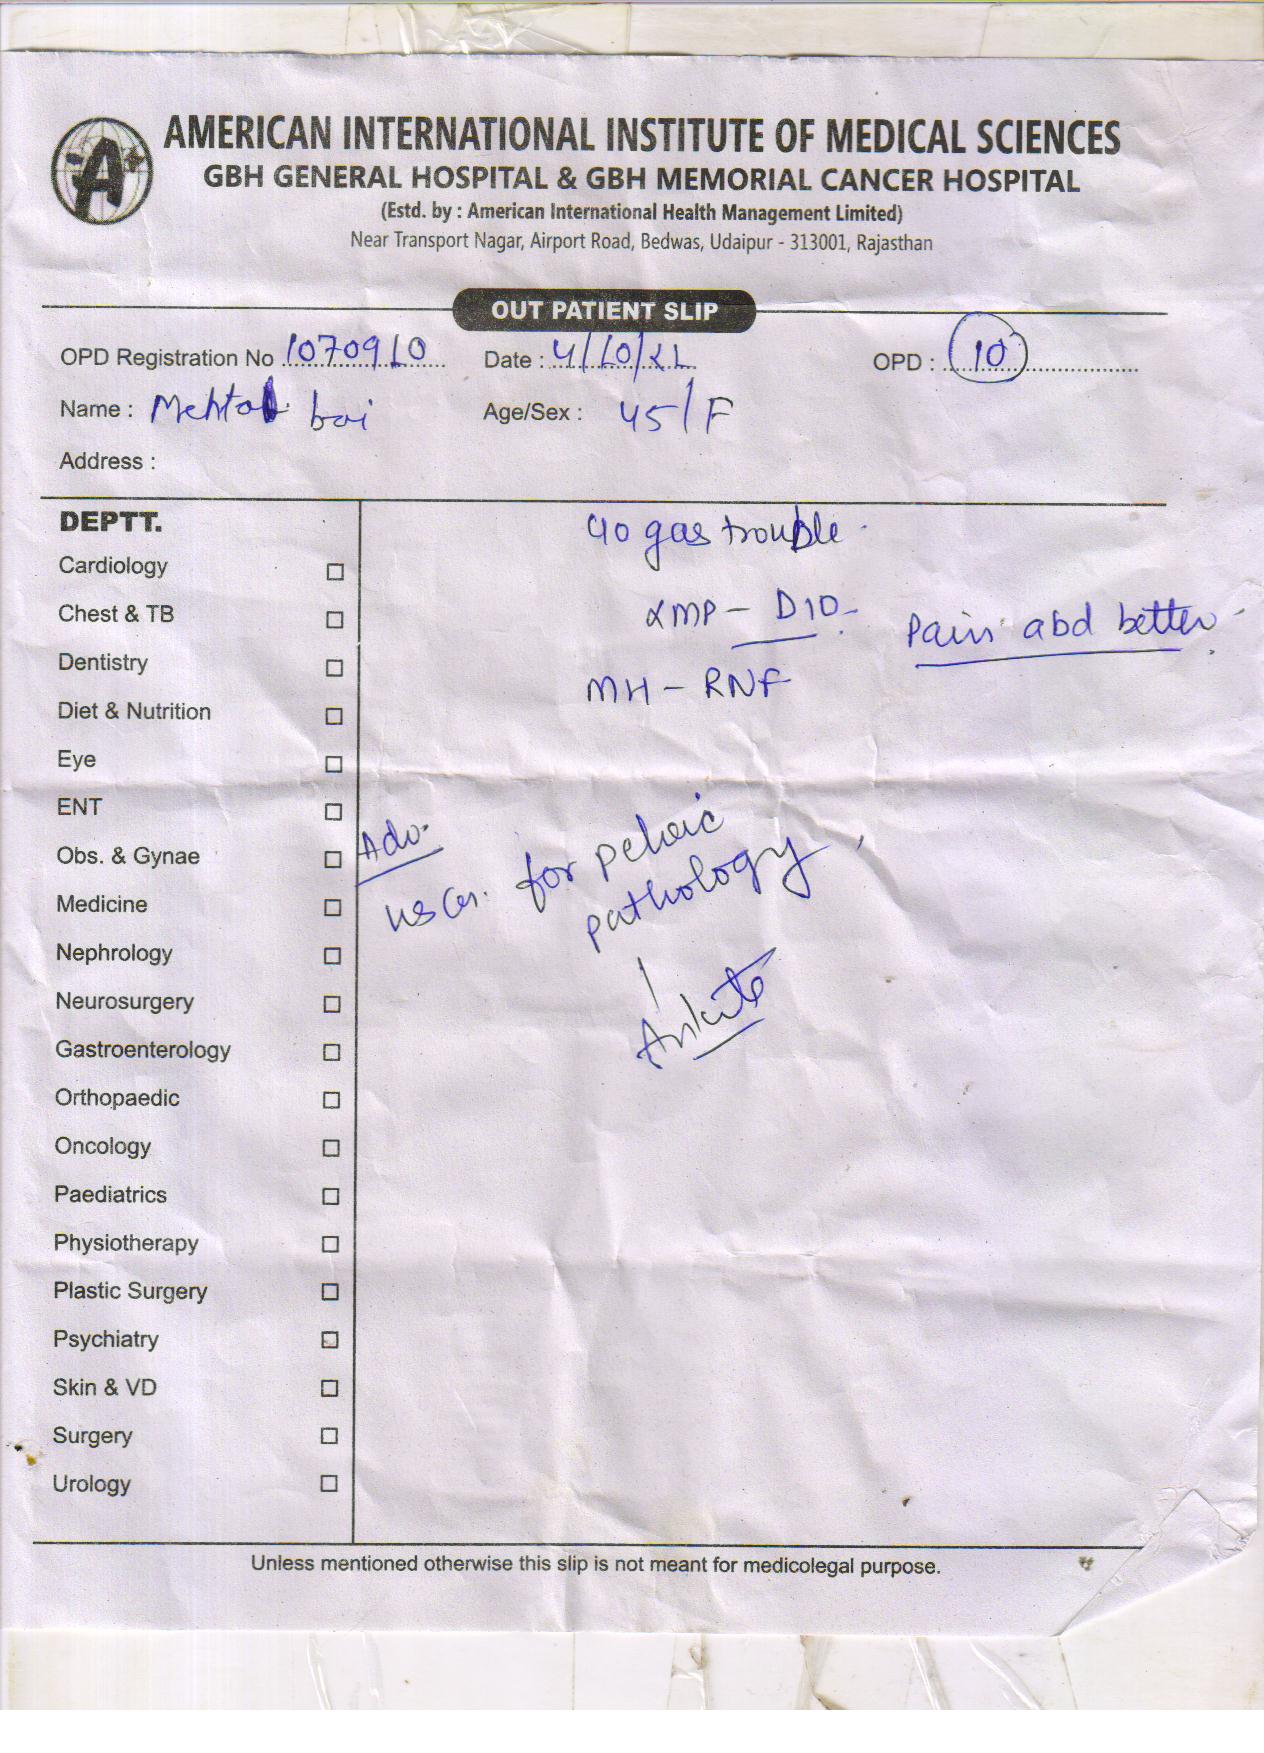 AMERICAN INTERNATIONAL INSTITUTE OF MEDICAL SCIENCES
GBH GENERAL HOSPITAL & GBH MEMORIAL CANCER HOSPITAL
(Estd. by : American International Health Management Limited)
Near Transport Nagar, Airport Road, Bedwas, Udaipur - 313001, Rajasthan
OUT PATIENT SLIP
OPD Registration No 1070910 Date : 4/10/21 OPD : 10
Name : bai Age/Sex : 45/F
Address :
DEPTT.
Cardiology
Chest & TB
Dentistry
Diet & Nutrition
Eye
ENT
Obs. & Gynae
Medicine
Nephrology
Neurosurgery
Gastroenterology
Orthopaedic
Oncology
Paediatrics
Physiotherapy
Plastic Surgery
Psychiatry
Skin & VD
Surgery
Urology
c/o gas trouble
LMP - D10
Pain abd better
MH - RNF
Adv.
for pelvic
pathology
Unless mentioned otherwise this slip is not meant for medicolegal purpose.